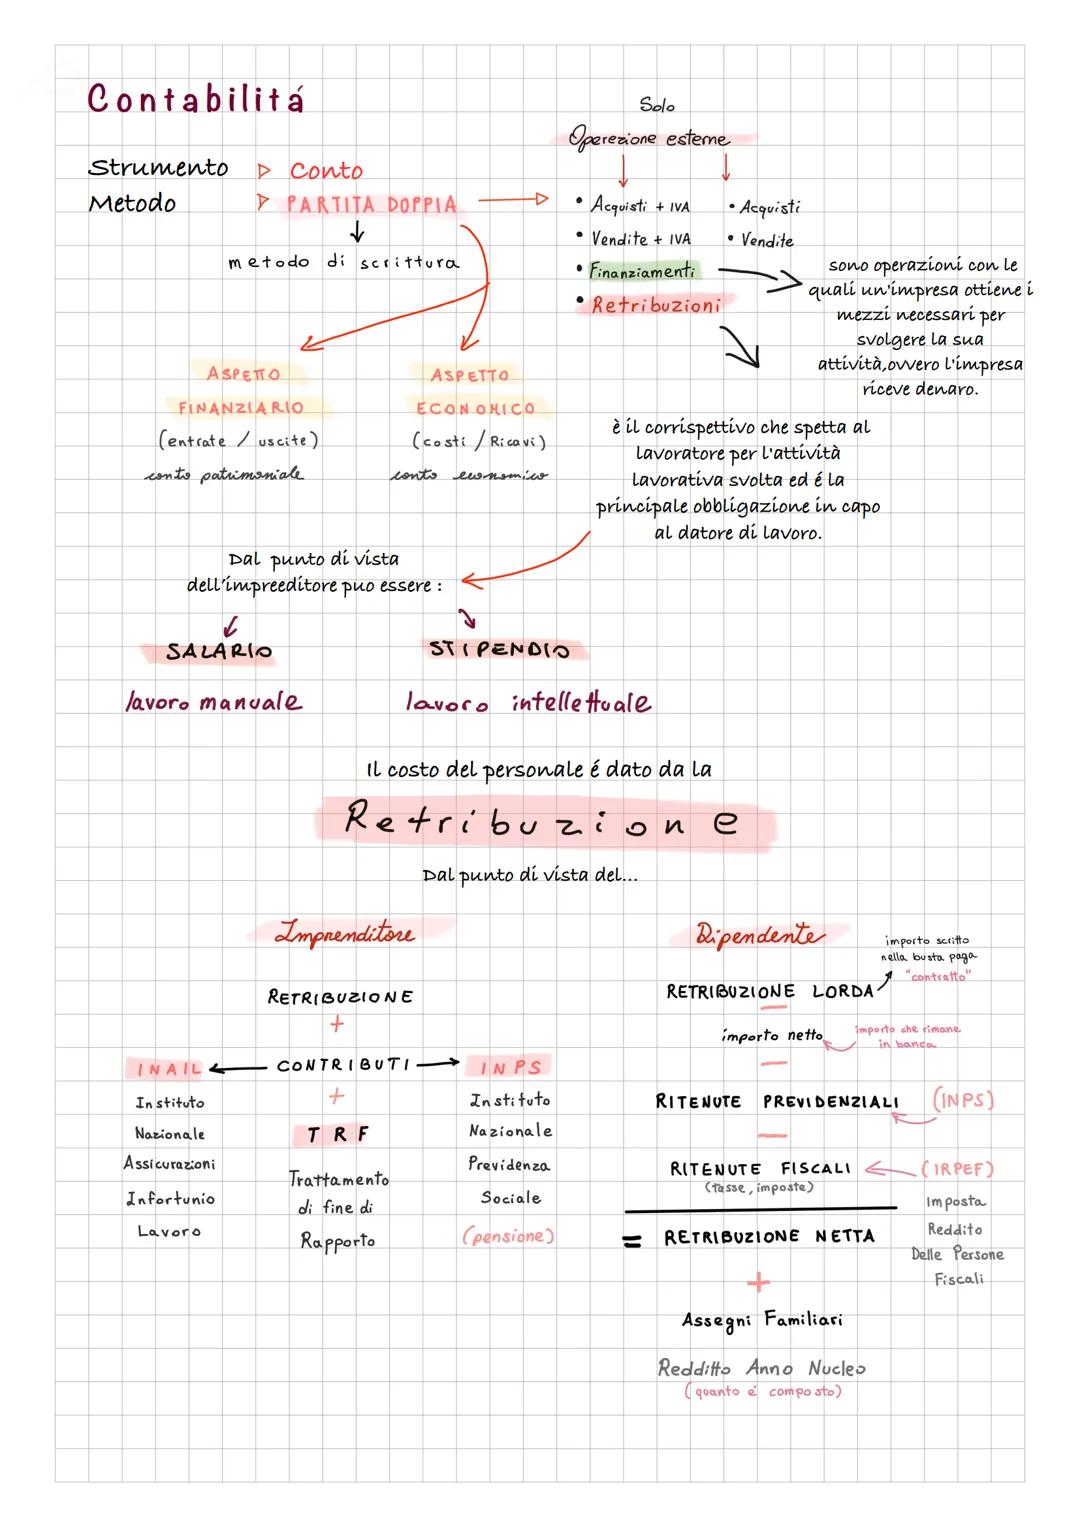 Contabilitá
Strumento ▷ Conto
Metodo ▷ PARTITA DOPPIA
metodo di scrittura
Solo
Operezione esterne
• Acquisti + IVA
• Vendite + IVA
• Finanziamenti
• Retribuzioni
• Acquisti
• Vendite
sono operazioni con le
quali un'impresa ottiene i
mezzi necessari per
svolgere la sua
attività,ovvero l'impresa
riceve denaro.
ASPETTO
FINANZIARIO
(entrate / uscite)
conto patrimoniale
ASPETTO
ECONOMICO
(costi / Ricavi)
conto economico
è il corrispettivo che spetta al
lavoratore per l'attività
lavorativa svolta ed é la
principale obbligazione in capo
al datore di lavoro.
Dal punto di vista
dell'impreeditore puo essere :
SALARIO
lavoro manuale
STIPENDIO
lavoro intellettuale
Il costo del personale é dato da la
Retribuzione
Dal punto di vista del...
Imprenditore
RETRIBUZIONE
+
CONTRIBUTI
+
TRF
Trattamento
di fine di
Rapporto
INAIL
Instituto
Nazionale
Assicurazioni
Infortunio
Lavoro
INPS
Instituto
Nazionale
Previdenza
Sociale
(pensione)
Dipendente
importo scritto
nella busta paga
"contratto"
RETRIBUZIONE LORDA
—
importo netto
importo che rimane
in banca
—
RITENUTE PREVIDENZIALI (INPS)
—
RITENUTE FISCALI (IRPEF)
(tasse, imposte)
Imposta
Reddito
Delle Persone
Fiscali
= RETRIBUZIONE NETTA
+
Assegni Familiari
Redditto Anno Nucleo
(quanto é composto)